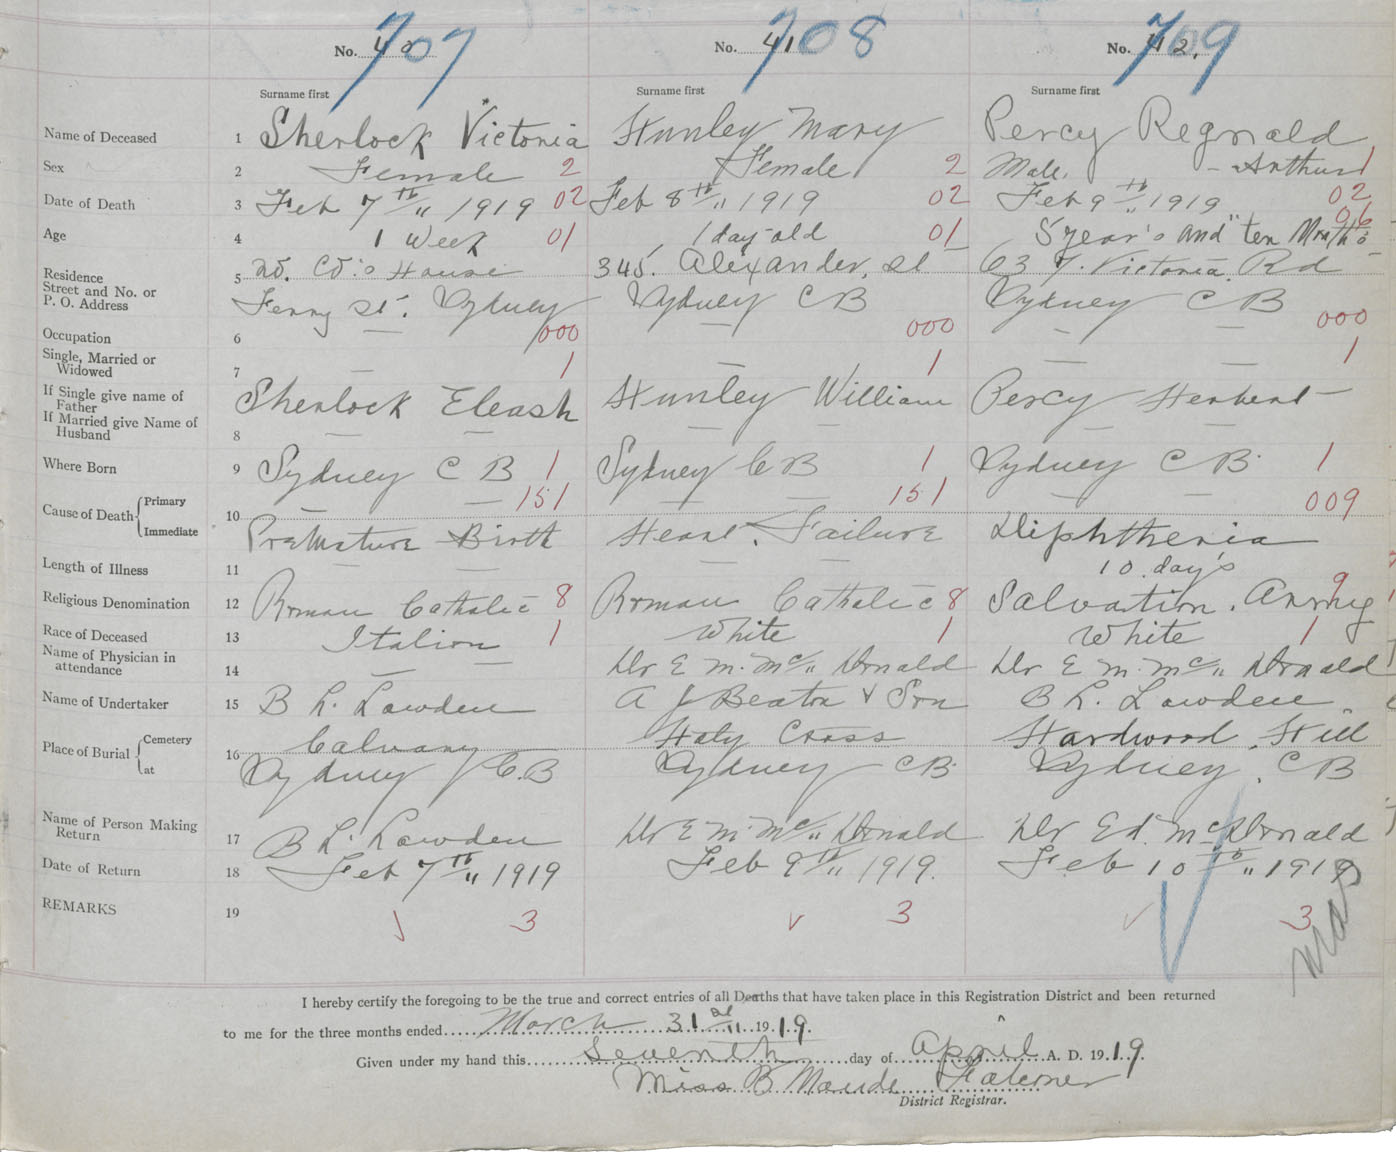 No. 40 707 No. 41 708 No. 42. 709
Surname first Surname first Surname first
Name of Deceased 1 Sherlock Victoria Hunley Mary Percy Reginald
Sex 2 Female 2 Female 2 Male. - Arthur 1
Date of Death 3 Feb 7th " 1919 02 Feb 8th " 1919 02 Feb 9th " 1919 02
Age 4 1 Week 01 1 day-old 01 5 year's and ten Months 06
Residence
Street and No. or 5 No. Co's House 345. Alexander, St 63 Victoria. Rd
P. O. Address Ferry St. Sydney Sydney C B Sydney C B
Occupation 6 — 000 — 000 — 000
Single, Married or
Widowed 7 — 1 — 1 — — 1
If Single give name of
Father Sherlock Eleash Hunley William Percy Herbert
If Married give Name of
Husband 8 — — — — — —
Where Born 9 Sydney C B 1 Sydney C B 1 Sydney C B. 1
Cause of Death Primary — — 151 — — 151 — — 009
Immediate 10 Premature Birth Heart. Failure Diphtheria
Length of Illness 11 — — — — 10 day's
Religious Denomination 12 Roman Catholic 8 Roman Catholic 8 Salvation. Army 9
Race of Deceased 13 Italian 1 White 1 White 1
Name of Physician in
attendance 14 — — Dr E M. Mc " Donald Dr E M. Mc " Donald
Name of Undertaker 15 B L. Lowden A J Beaton & Son B L. Lowden
Place of Burial Cemetery 16 Calvary Holy Cross Hardwood. Hill
at Sydney C.B Sydney CB. Sydney. CB
Name of Person Making
Return 17 B L. Lowden Dr E M. Mc " Donald Dr Ed. McDonald
Date of Return 18 Feb 7th " 1919 Feb 9th " 1919. Feb 10th " 1919
REMARKS 19 3 3 3
I hereby certify the foregoing to be the true and correct entries of all Deaths that have taken place in this Registration District and been returned
to me for the three months ended March 31st " 1919.
Given under my hand this Seventh day of April A. D. 1919.
Miss B Maude
District Registrar.